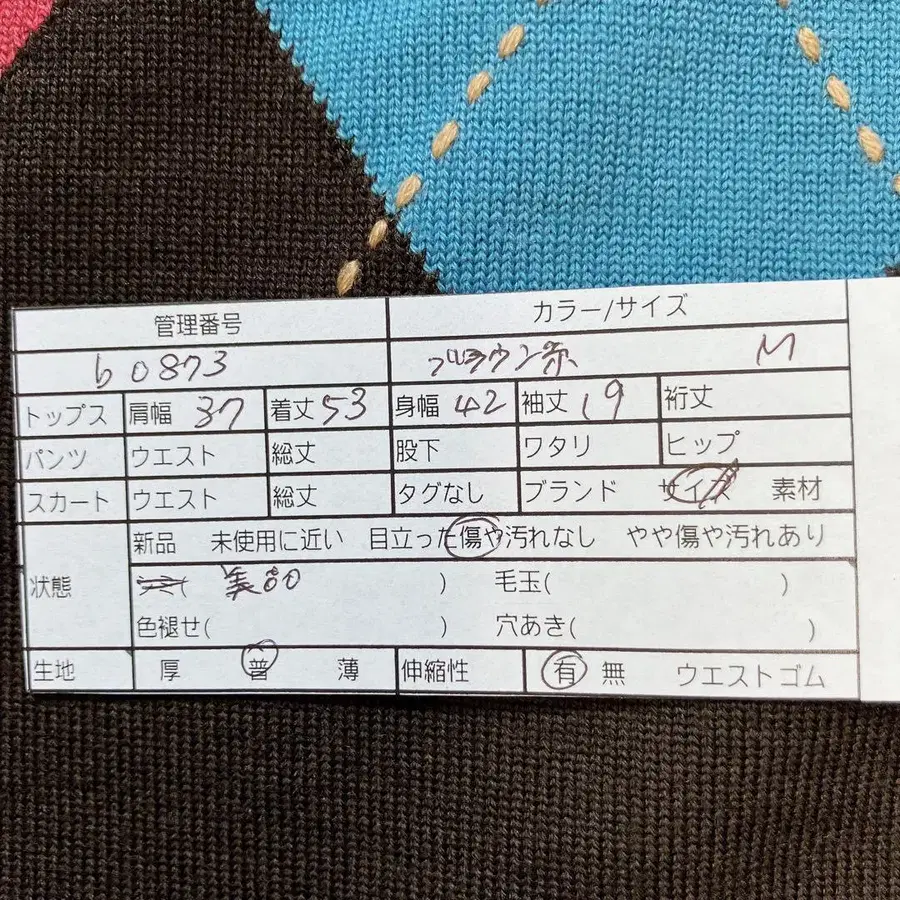 管理番号 カラー/サイズ
b0873 ブラウン系 M
トップス 肩幅 37 着丈 53 身幅 42 袖丈 19 裄丈
パンツ ウエスト 総丈 股下 ワタリ ヒップ
スカート ウエスト 総丈 タグなし ブランド サイズ 素材
状態 新品 未使用に近い 目立った傷や汚れなし やや傷や汚れあり
( 美品 ) 毛玉( )
色褪せ( ) 穴あき( )
生地 厚 普 薄 伸縮性 有 無 ウエストゴム